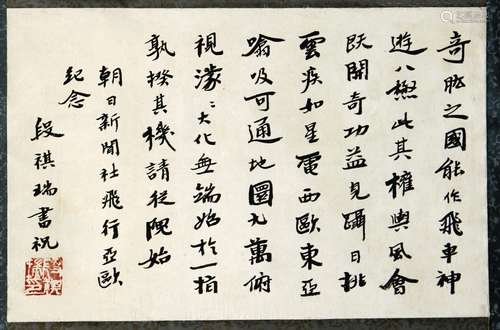 奇肱之國能作飛車神
遊八極此其權輿風會
既開奇功益見躡日排
雲疾如星電西歐東亞
噏吸可通地圜九萬俯
視濛〻大化無端始於一指
孰揆其機請從隗始
朝日新聞社飛行亞歐
紀念
段祺瑞書祝